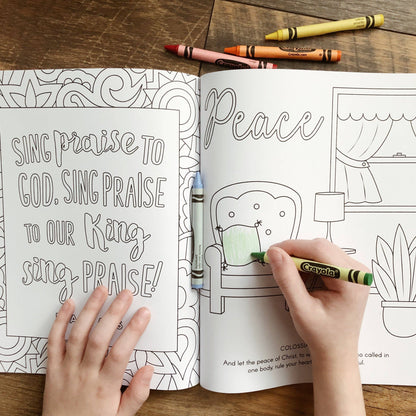 SING praise TO
GOD, SING PRAISE
TO OUR King
sing PRAISE!
Peace
Crayola
COLOSSI
And let the peace of Christ, to w called in
one body, rule your hear ul.